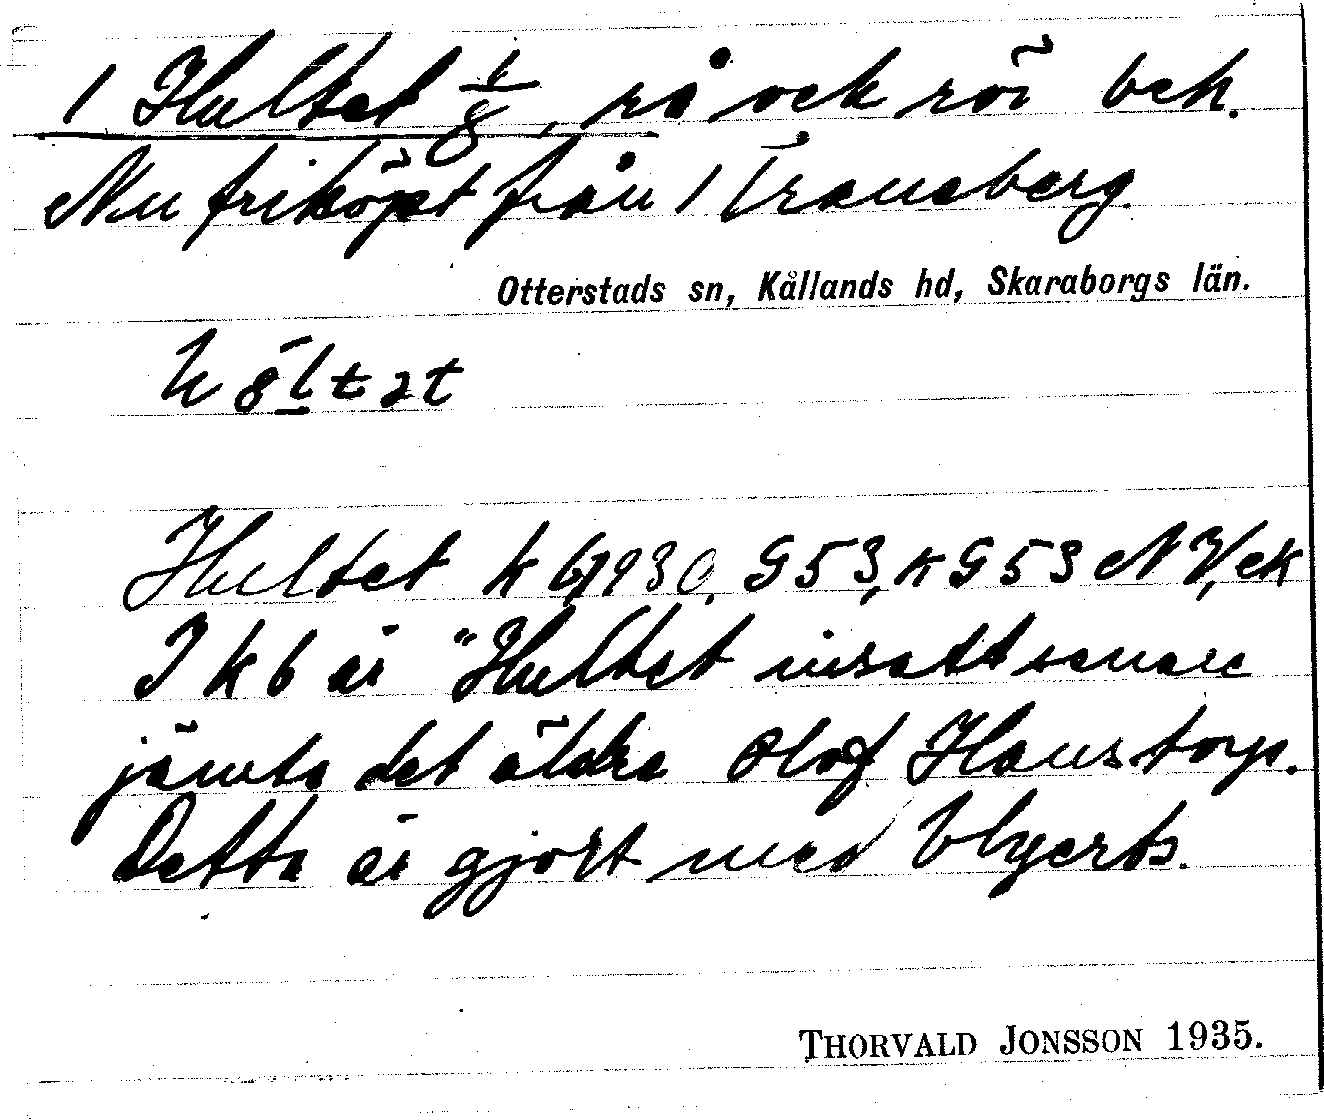 1 Hultet 1/8, rå och rör beh.
Nu friköpt från 1 Traneberg.
Otterstads sn, Kållands hd, Skaraborgs län.
Hultet k b 1930, G 53, K G 53
I k b är "Hultet insatt senare
jämte det äldre Olof Hanstorp.
Detta är gjort med blyerts.
THORVALD JONSSON 1935.